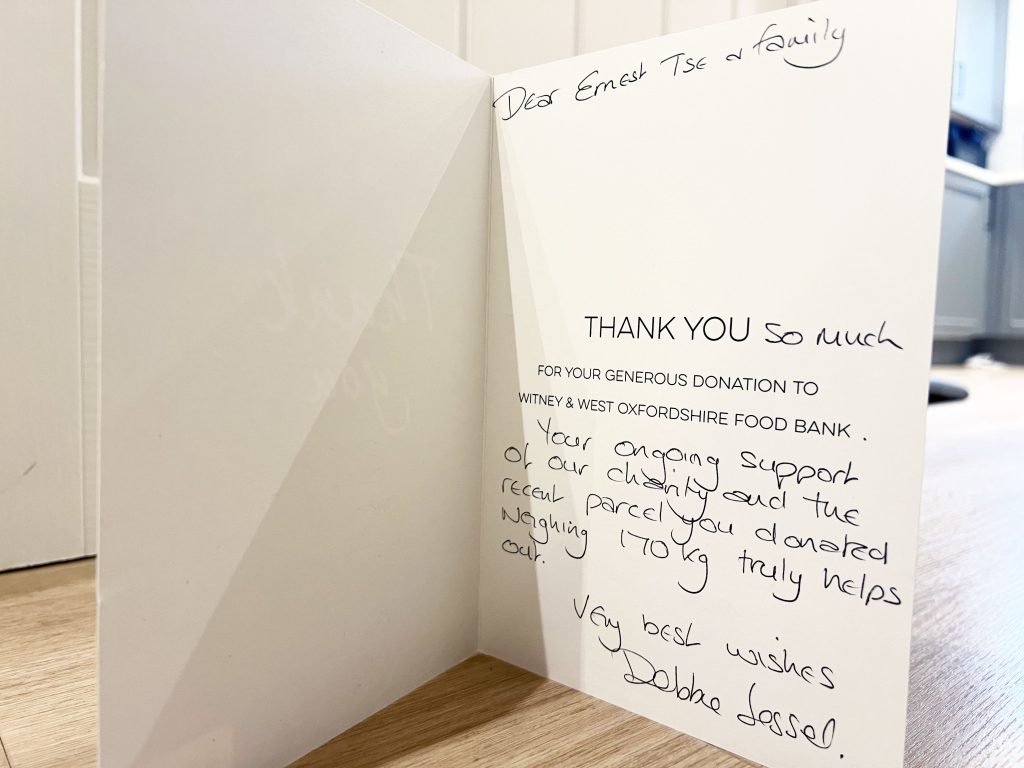 Dear Ernest Tse & family
THANK YOU so much
FOR YOUR GENEROUS DONATION TO
WITNEY & WEST OXFORDSHIRE FOOD BANK .
Your ongoing support
of our charity and the
recent parcel you donated
weighing 170kg truly helps
our.
Very best wishes
Debbie
Thank
you